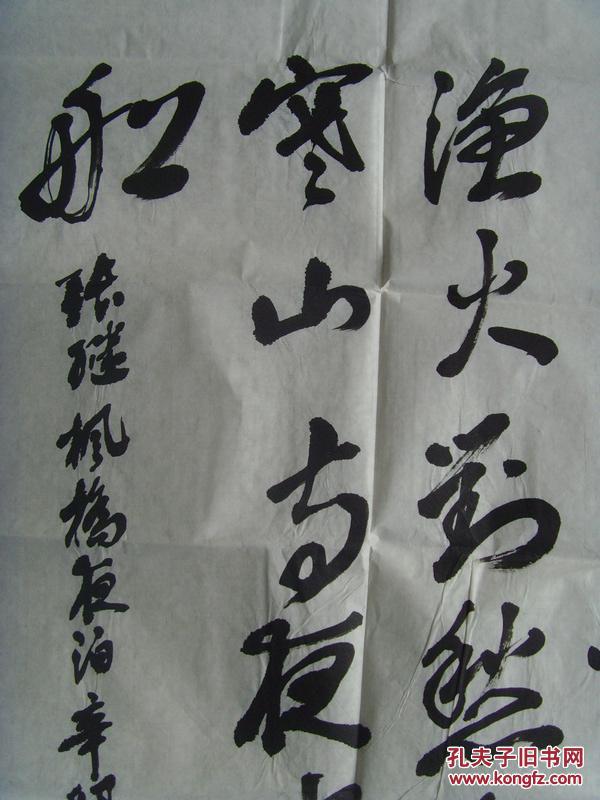 渔火對愁
寒山寺夜
船
張继枫橋夜泊辛
孔夫子旧书网
www.kongfz.com